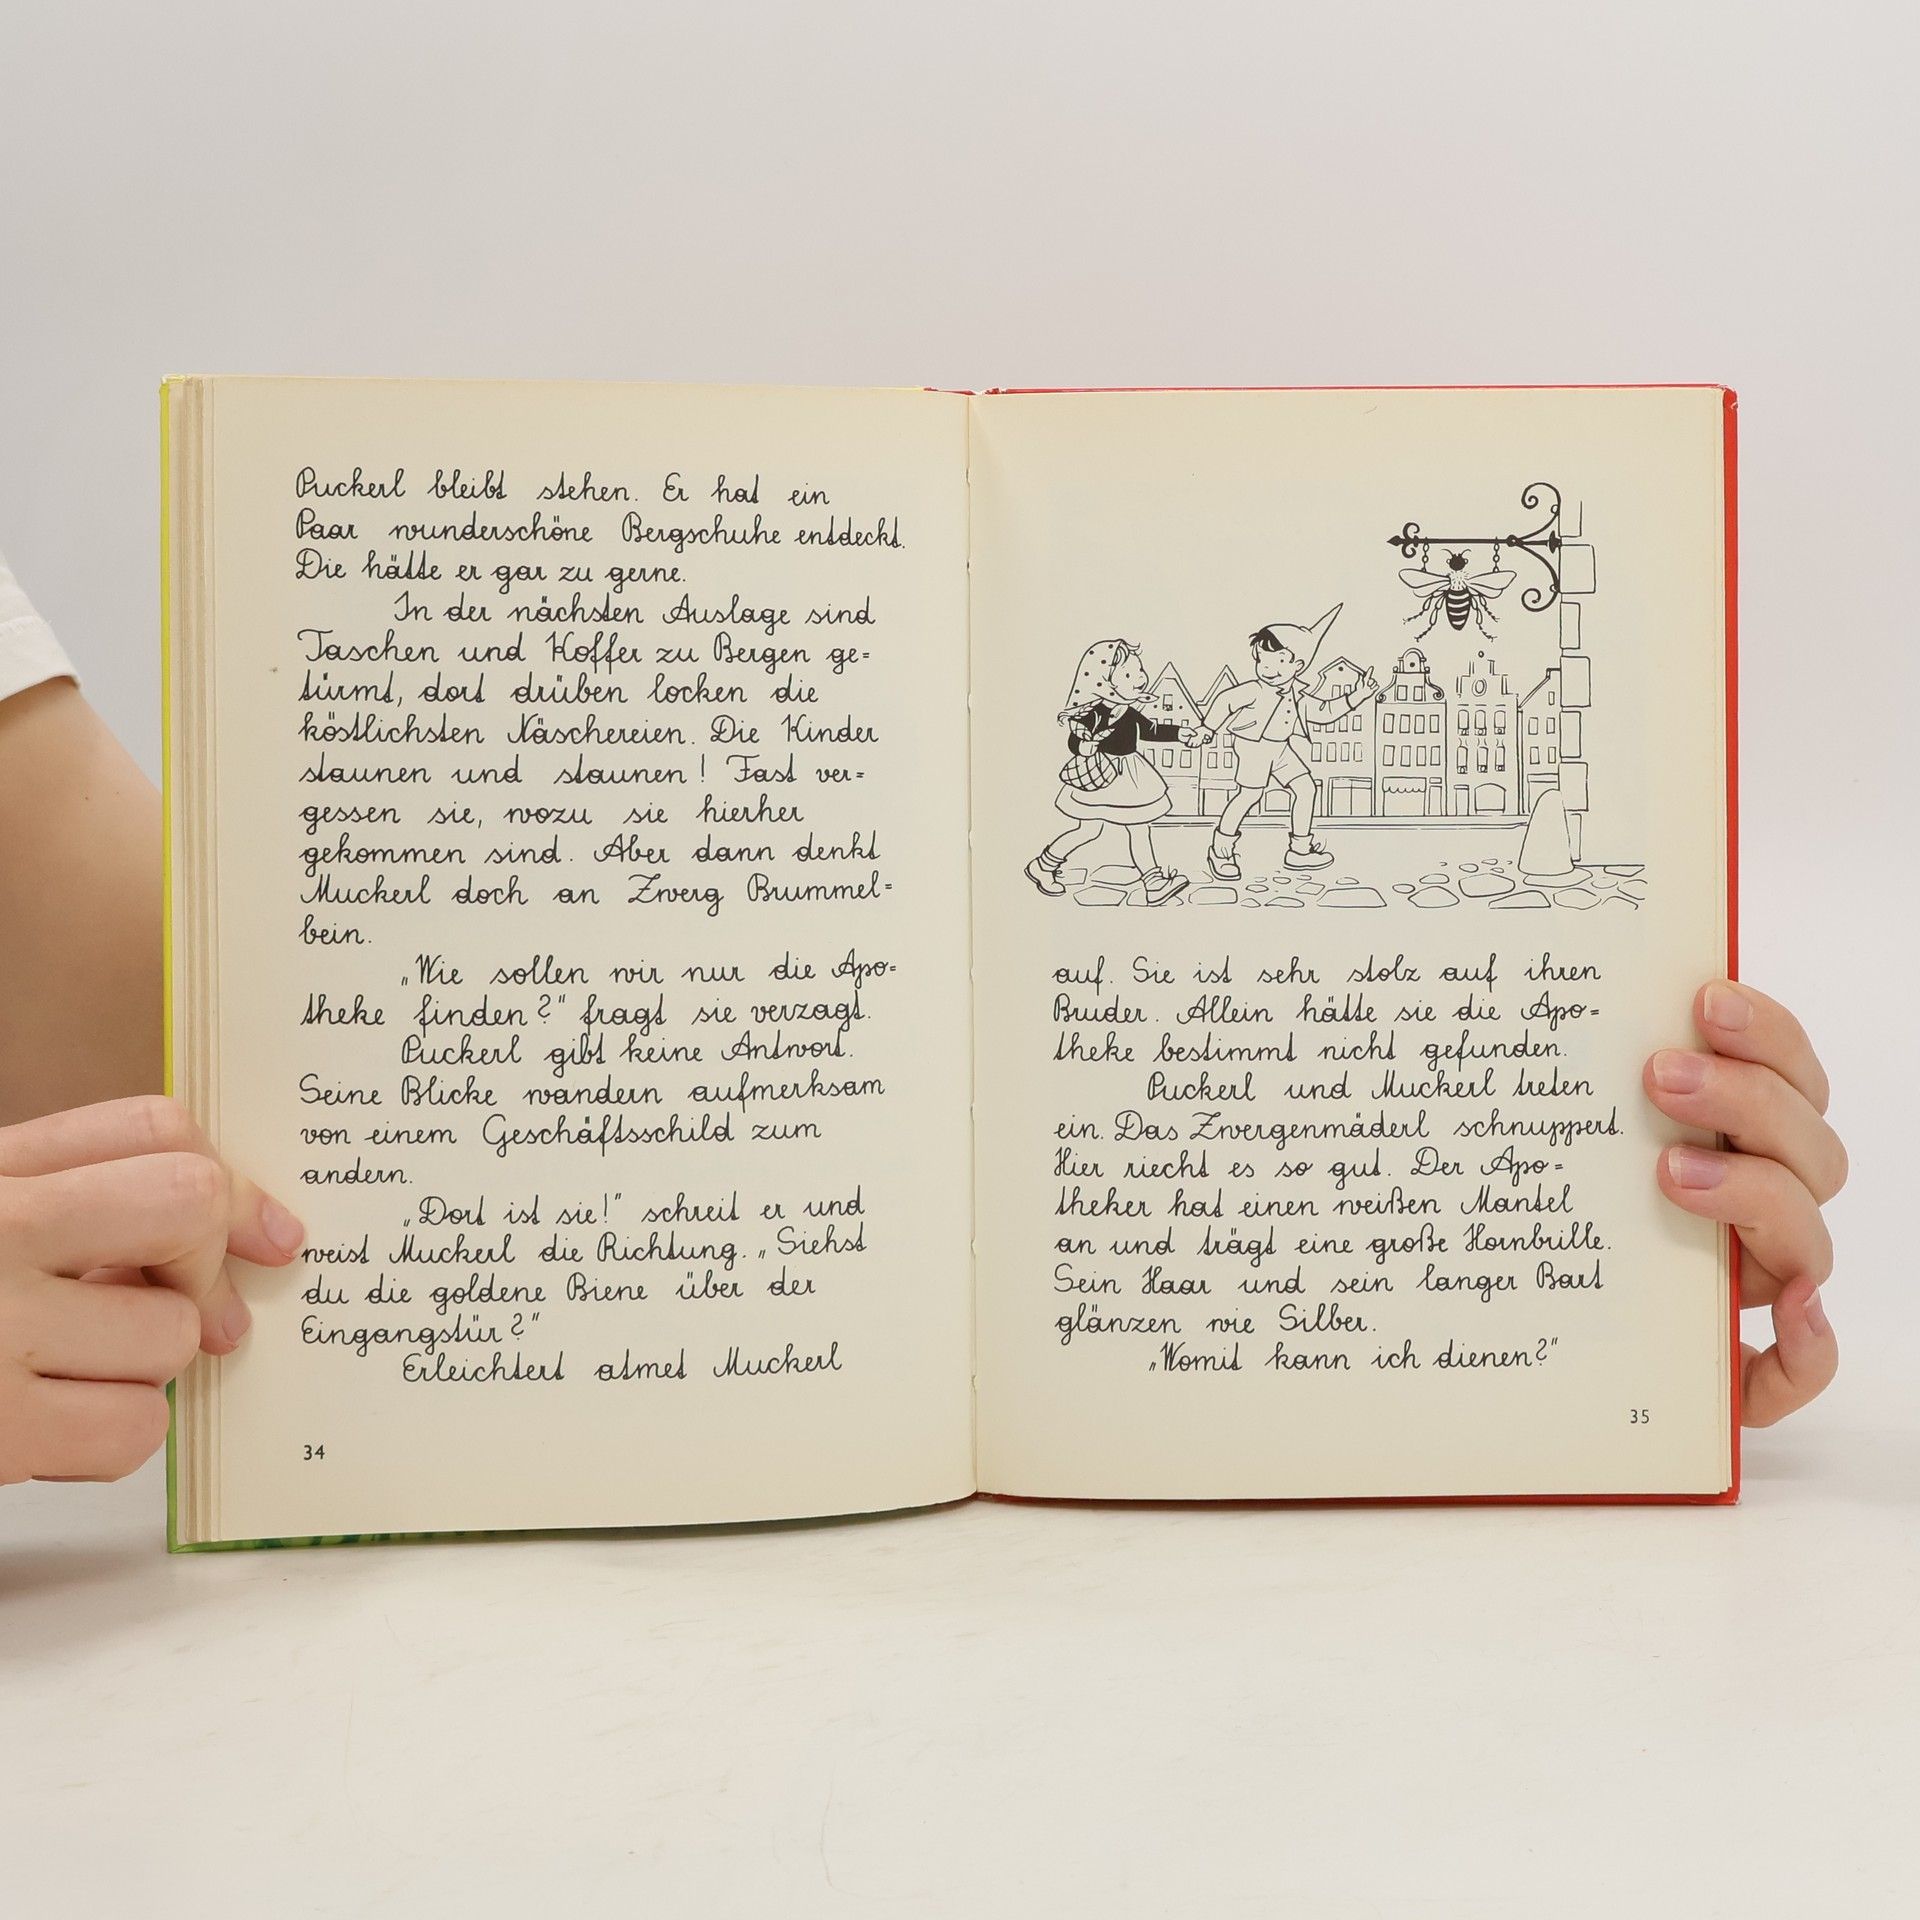 Puckerl bleibt stehen. Er hat ein
Paar wunderschöne Bergschuhe entdeckt.
Die hätte er gar zu gerne.
In der nächsten Auslage sind
Taschen und Koffer zu Bergen ge=
türmt, dort drüben locken die
köstlichsten Näschereien. Die Kinder
staunen und staunen! Fast ver=
gessen sie, wozu sie hierher
gekommen sind. Aber dann denkt
Muckerl doch an Zwerg Brummel=
bein.
„Wie sollen wir nur die Apo=
theke finden?" fragt sie verzagt.
Puckerl gibt keine Antwort.
Seine Blicke wandern aufmerksam
von einem Geschäftsschild zum
andern.
„Dort ist sie!" schreit er und
weist Muckerl die Richtung. „Siehst
du die goldene Biene über der
Eingangstür?"
Erleichtert atmet Muckerl
34
auf. Sie ist sehr stolz auf ihren
Bruder. Allein hätte sie die Apo=
theke bestimmt nicht gefunden.
Puckerl und Muckerl treten
ein. Das Zwergenmäderl schnuppert.
Hier riecht es so gut. Der Apo=
theker hat einen weißen Mantel
an und trägt eine große Hornbrille.
Sein Haar und sein langer Bart
glänzen wie Silber.
„Womit kann ich dienen?"
35